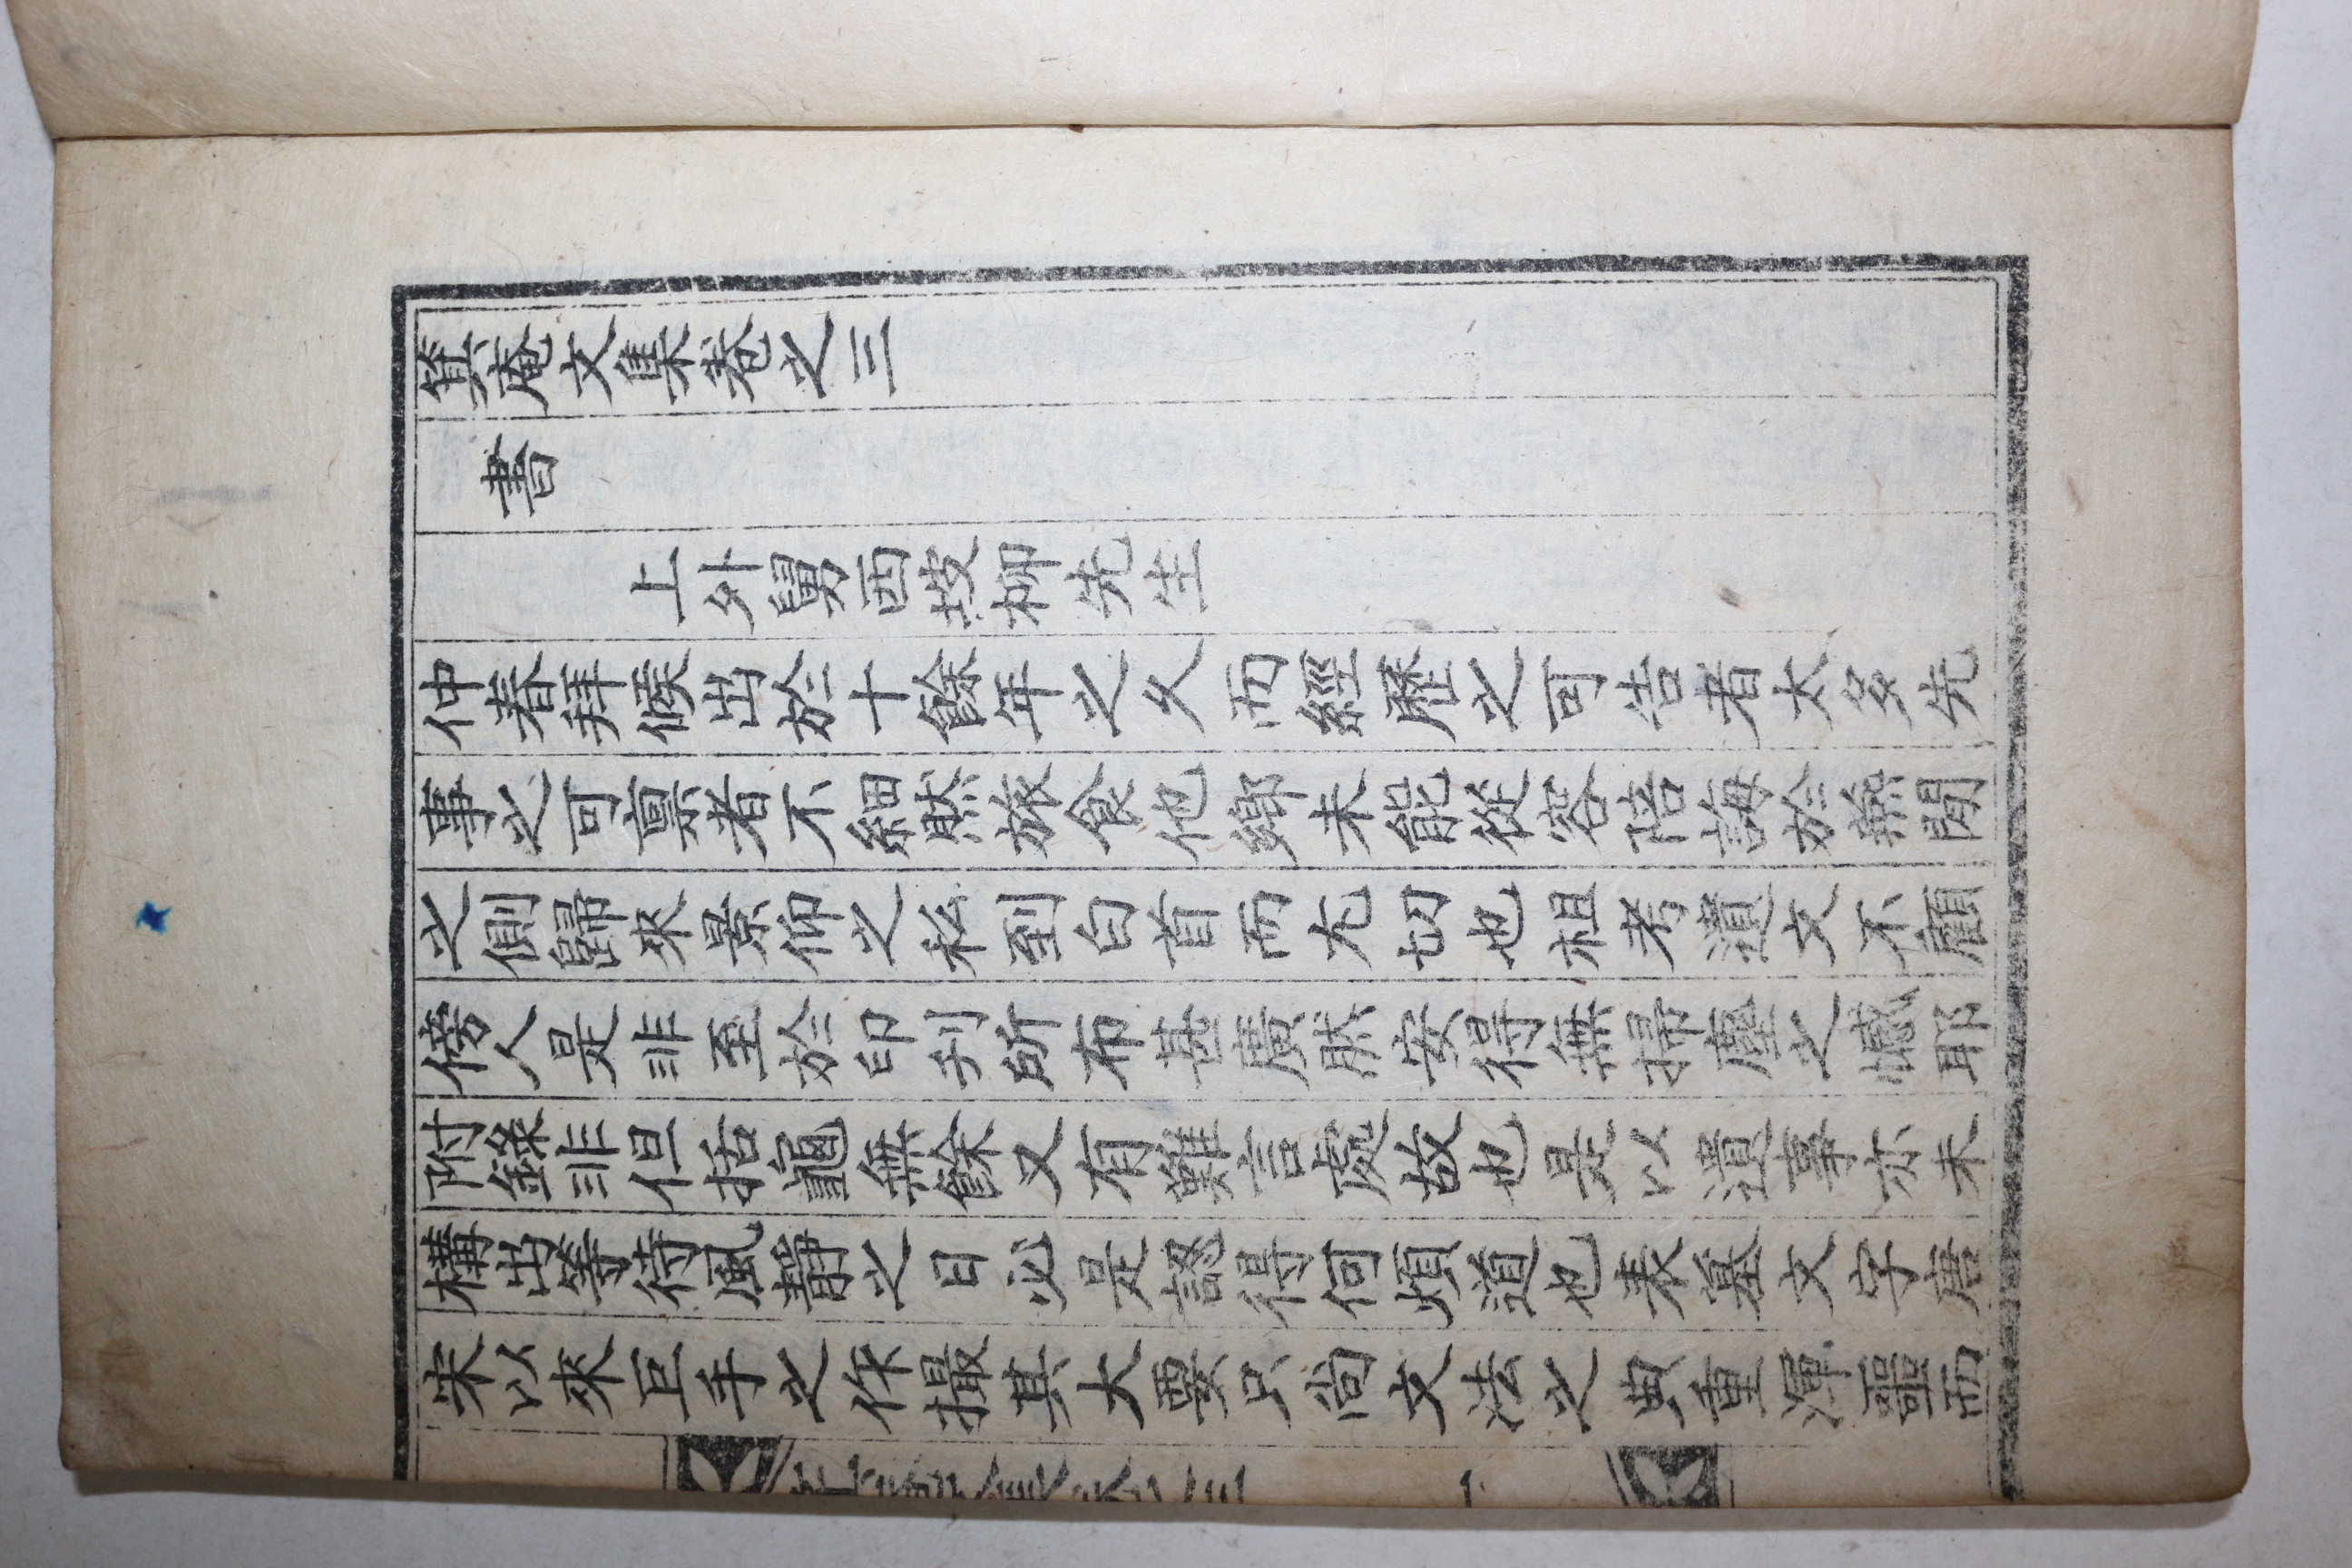 庵文集卷之三
書
上外舅西坡柳先生
仲春拜候出於十餘年之久而經歷之可告者太多先
事之可稟者不細然旅食他鄕未能從容陪誨於燕閒
之側歸來景仰之私到白首而尤切也祖考遺文不顧
傍人是非至於印刊所布甚廣然安得無掃塵之憾耶
附錄非但括龜無餘又有難言處故也是以遺事亦未
構出等待風靜之日必是認得何煩道也表墓文字唐
宋以來巨手之作撮其大要只尙文法之典重渾噩而